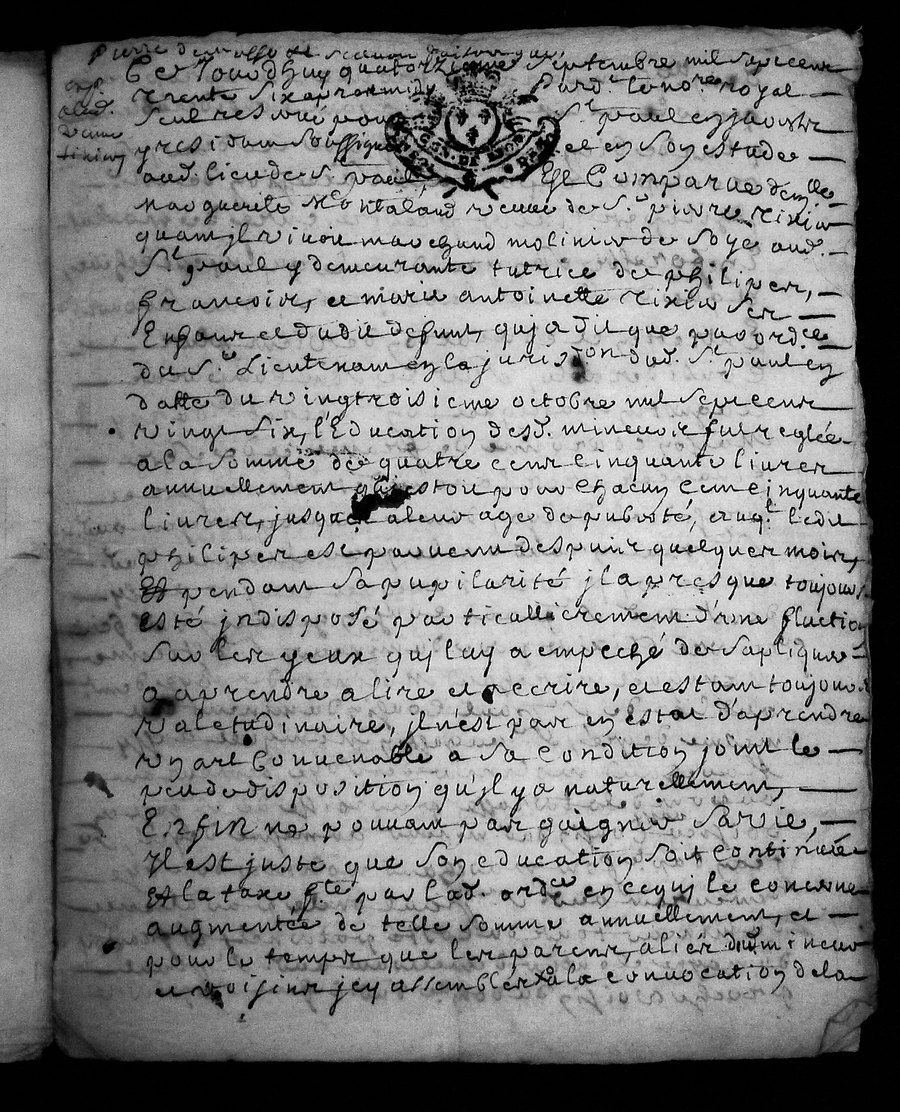 Ce Jourdhuy quatorzieme septembre mil sept cent
trente six apres midy Pard.t le no.re royal
Seul reservé pour S.t paul
y residant soussigné et en son estude
aud. lieu de S.t paul Est Comparue dem.lle
Marguerite veuve de S.r pierre
quand Il vivoit marchand molinier de Soye aud.
S.t paul y demeurante tutrice de philipes,
francois, et marie antoinette ses
Enfans et dudit defunt, quj a dit que par ord.ce
du S.r Lieutenant en la juris.on dud. S.t paul en
datte du vingtroisieme octobre mil sept cent
vingt six, l'Education desd. mineurs fut reglée
a la somme de quatre cens cinquante livres
annuellement quj estoit pour chacun Cent cinquante
livres, jusques a leur age de puberté, auq.l ledit
philipes est parvenu despuis quelques mois,
Et pendant sa pupilarité jl a presque toujours
esté jndisposé particullierement d'une fluction
sur les yeux quj luy a empeché de sapliquer
a aprendre a lire et a ecrire, et estant toujours
valetudinaire, jl n'est pas en estat d'aprendre
un art Convenable a sa Condition joint le
peu de disposition qu'jl y a naturellement,
Enfin ne pouvant pas guaigner sa vie,
Il est juste que son education soit Continuée
Et la taxe f.te par lad. ord.ce en ce quj le concerne
augmentée de telle somme annuellement, et
pour le temps que les parens, aliés dud. mineur
et voisins jcy assemblés a la convocation de la